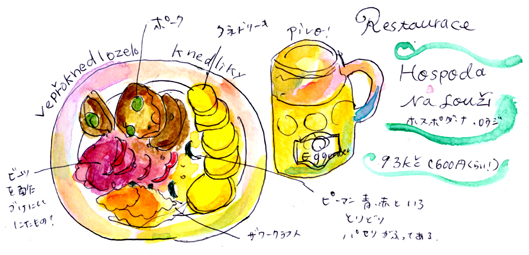 ポーク
クネドリーキ
Pivo!
Restaurace
Vepřoknedlozelo
knedlíky
Hospoda
Na Louži
ホスポダ・ナ・ロウジ
93kč (600円くらい!)
ビーツ
を酢
づけにして
にたもの!
ザワークラフト
ピーマン 青、赤といろ
とりどり
パセリがふってある。